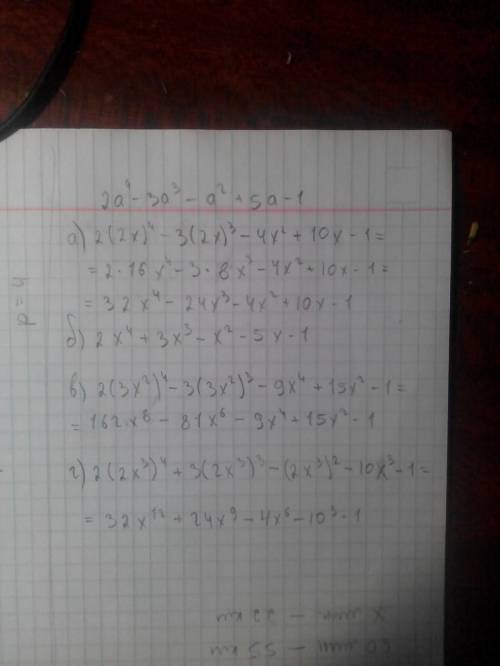 2a⁴ - 3a³ - a² + 5a - 1
а) 2(2x)⁴ - 3(2x)³ - 4x² + 10x - 1 =
= 2·16x⁴ - 3·8x³ - 4x² + 10x - 1 =
= 32x⁴ - 24x³ - 4x² + 10x - 1
б) 2x⁴ + 3x³ - x² - 5x - 1
в) 2(3x²)⁴ - 3(3x²)³ - 9x⁴ + 15x² - 1 =
= 162x⁸ - 81x⁶ - 9x⁴ + 15x² - 1
г) 2(2x³)⁴ + 3(2x³)³ - (2x³)² - 10x³ - 1 =
= 32x¹² + 24x⁹ - 4x⁶ - 10³ - 1
X мин - 22 км
60 мин - 55 км